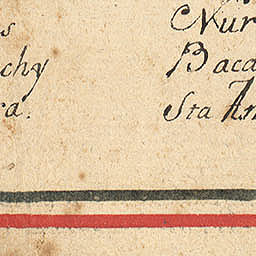 s
chy
ra.
Nur
Baca
Sta An